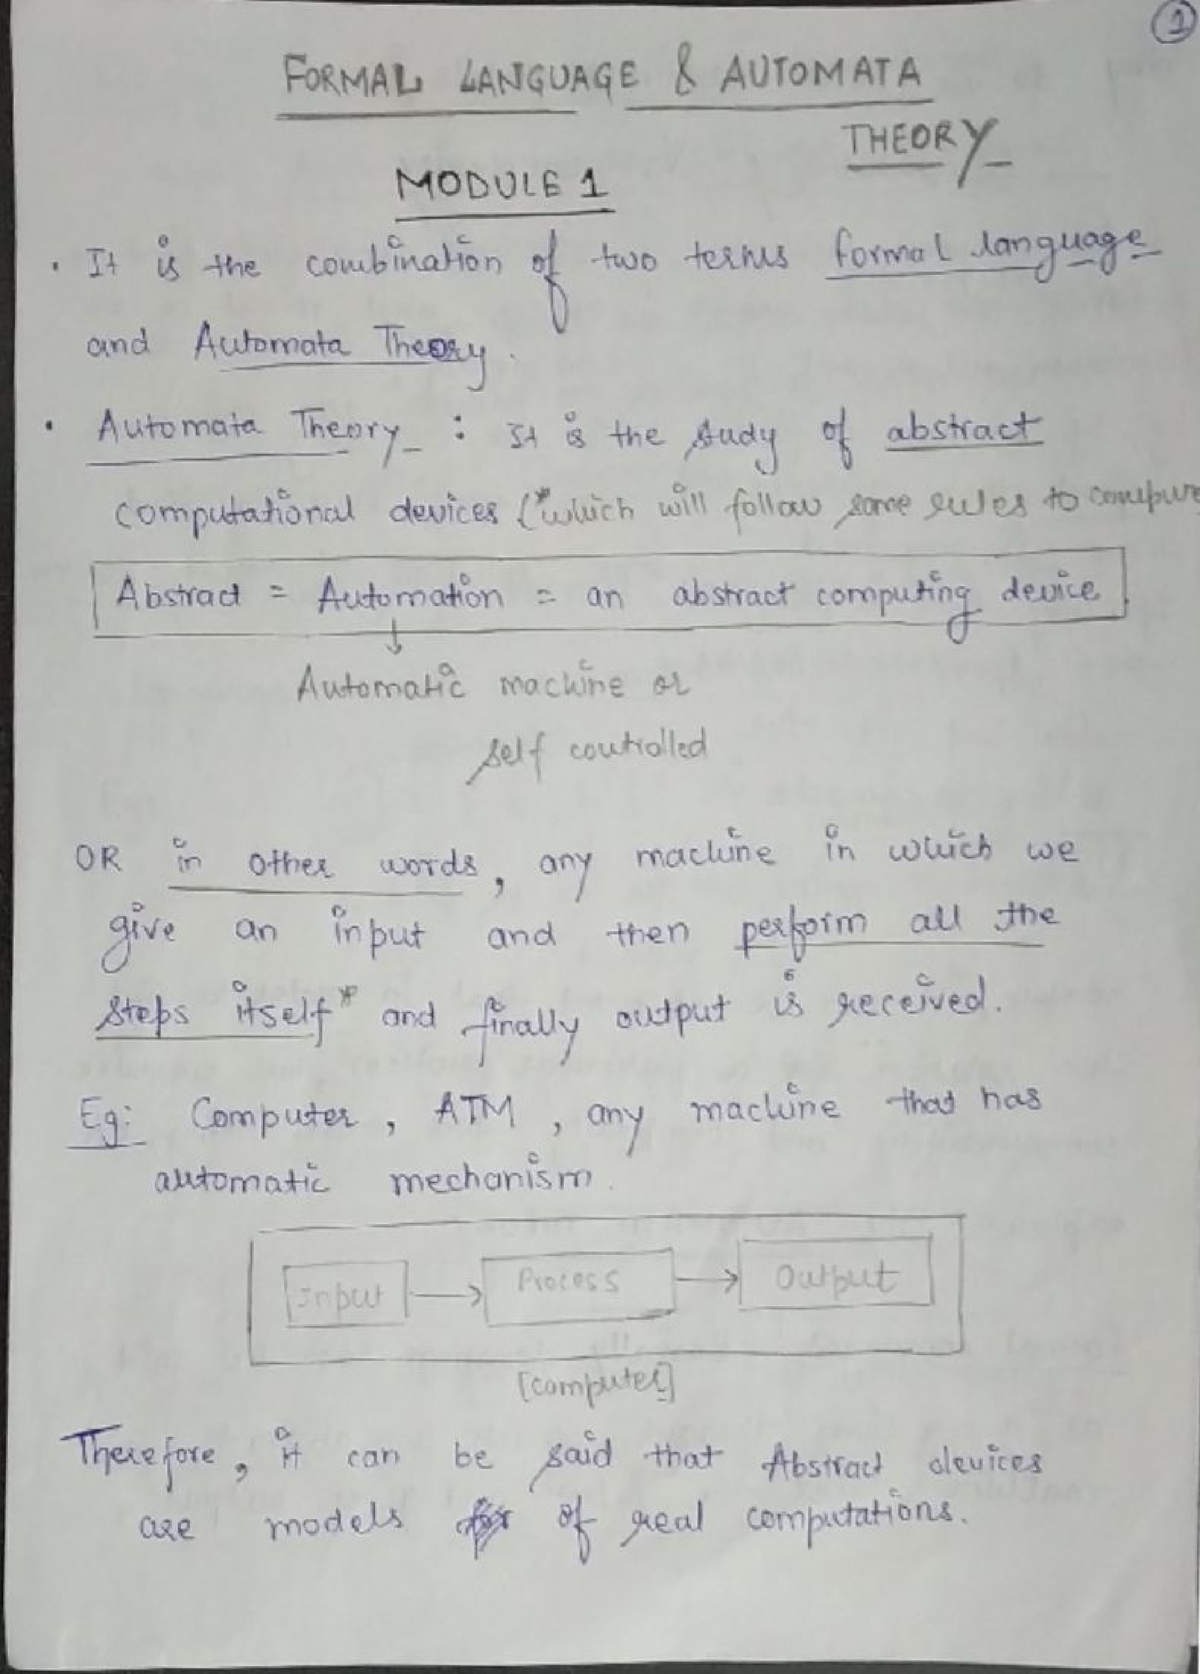 1
FORMAL LANGUAGE & AUTOMATA
THEORY
MODULE 1
• It is the combination of two terms formal language
and Automata Theory.
• Automata Theory : It is the study of abstract
computational devices (*which will follow some rules to compure
Abstract = Automation = an abstract computing device
Automatic machine or
self controlled
OR in other words, any machine in which we
give an input and then perform all the
steps itself* and finally output is received.
Eg: Computer, ATM, any machine that has
automatic mechanism.
Input → Process → Output
[computer]
Therefore, it can be said that Abstract devices
are models of real computations.